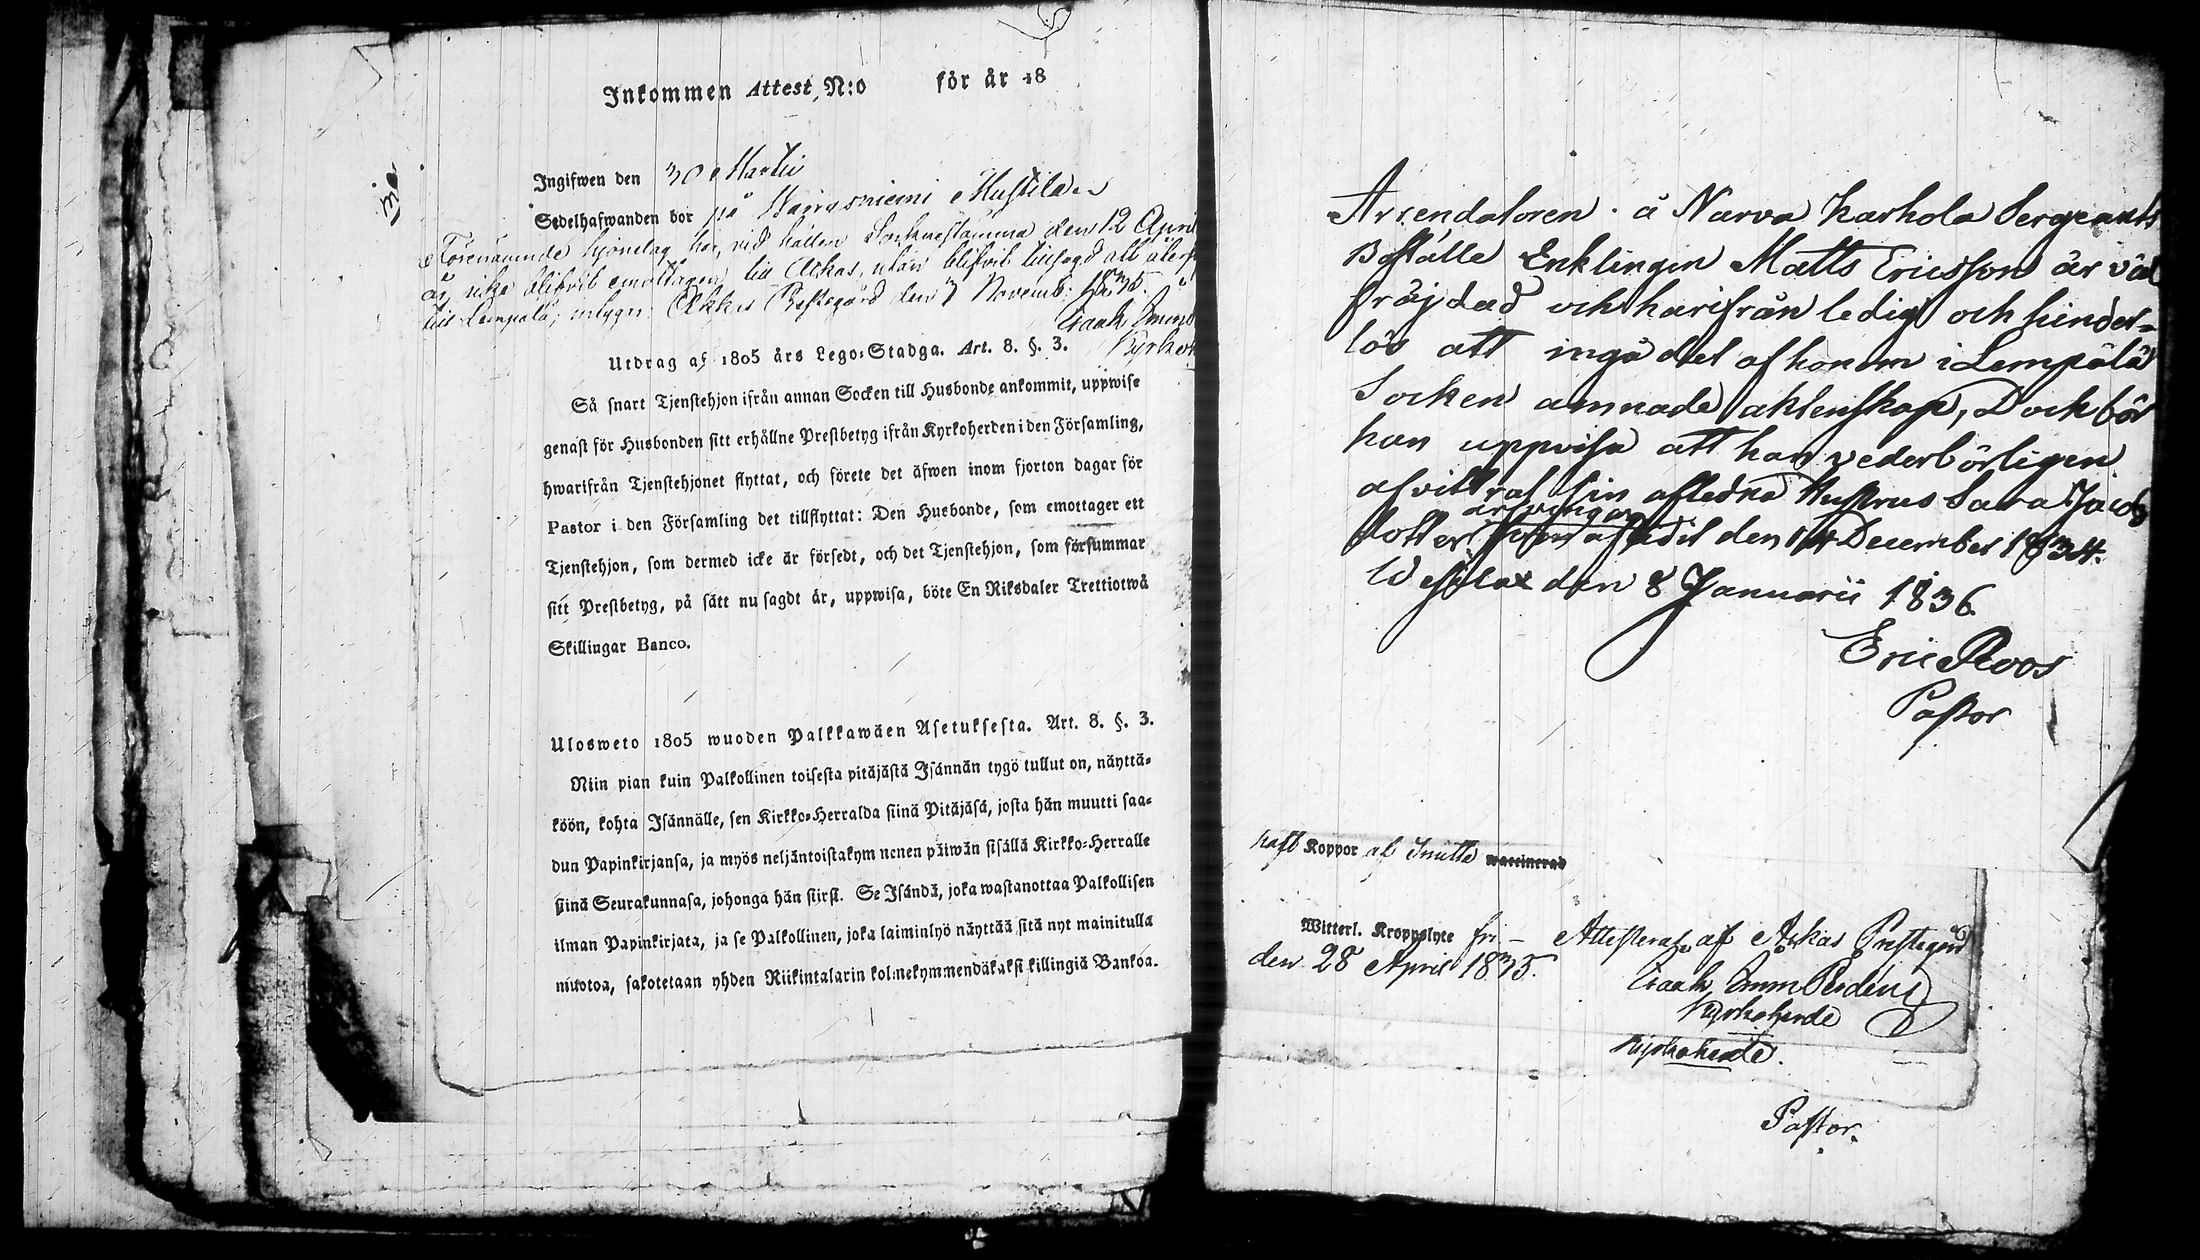 Inkommen Attest, N:o för år 18
Ingifwen den 30 Martii
Sedelhafwanden bor på Warrasniemi Mustila
Förenämnde hjonelag har, vid hållen Socknestämma den 12 April
år, icke blifvit emottagen till Ackas, utan blifvit tillsagd att återfl
till Lempälä; intygar. Akkas Prestegård den 7 Novemb: 1835.
Isaak Emm
Kyrkoh
Utdrag af 1805 års Lego-Stadga. Art. 8. §. 3.
Så snart Tjenstehjon ifrån annan Socken till Husbonde ankommit, uppwise
genast för Husbonden sitt erhållne Prestbetyg ifrån Kyrkoherden i den Församling,
hwarifrån Tjenstehjonet flyttat, och förete det äfwen inom fjorton dagar för
Pastor i den Församling det tillflyttat: Den Husbonde, som emottager ett
Tjenstehjon, som dermed icke är försedt, och det Tjenstehjon, som försummar
sitt Prestbetyg, på sätt nu sagdt är, uppwisa, böte En Riksdaler Trettiotwå
Skillingar Banco.
Ulosweto 1805 wuoden Palkkawäen Asetuksesta. Art. 8. §. 3.
Niin pian kuin Palkollinen toisesta pitäjästä Isännän tygö tullut on, näyttä-
köön, kohta Isännälle, sen Kirkko-Herralda siinä Pitäjäsä, josta hän muutti saa-
dun Papinkirjansa, ja myös neljäntoistakym nenen päiwän sisällä Kirkko-Herralle
siinä Seurakunnasa, johonga hän siirsi. Se Isändä, joka wastanottaa Palkollisen
ilman Papinkirjata, ja se Palkollinen, joka laiminlyö näyttää sitä nyt mainitulla
muotoa, sakotetaan yhden Riikintalarin kolmekymmendäkaksi killingiä Bankoa.
Arrendatoren å Narva Karhola Sergeants
Boställe Enklingen Matts Ericsson är väl
fräjdad och härifrån ledig och hinder-
lös att ingå det af honom i Lempälä
Socken ämnade äktenskap, Dock bör
han uppvisa att han vederbörligen
afvittrat sin afledna Hustrus Sara Jacobs
dotter arfvingar aflidit den 14 December 1834.
Wesilax den 8 Januarii 1836
Eric Roos
Pastor
haft Koppor af Smitta waccinerad
Witterl. Kroppslyte fri – Attesteras af Ackas Prestegård
den 28 April 1835.
Isaak Emm Perdenij
Kyrkoherde
Kyrkoherde.
Pastor.